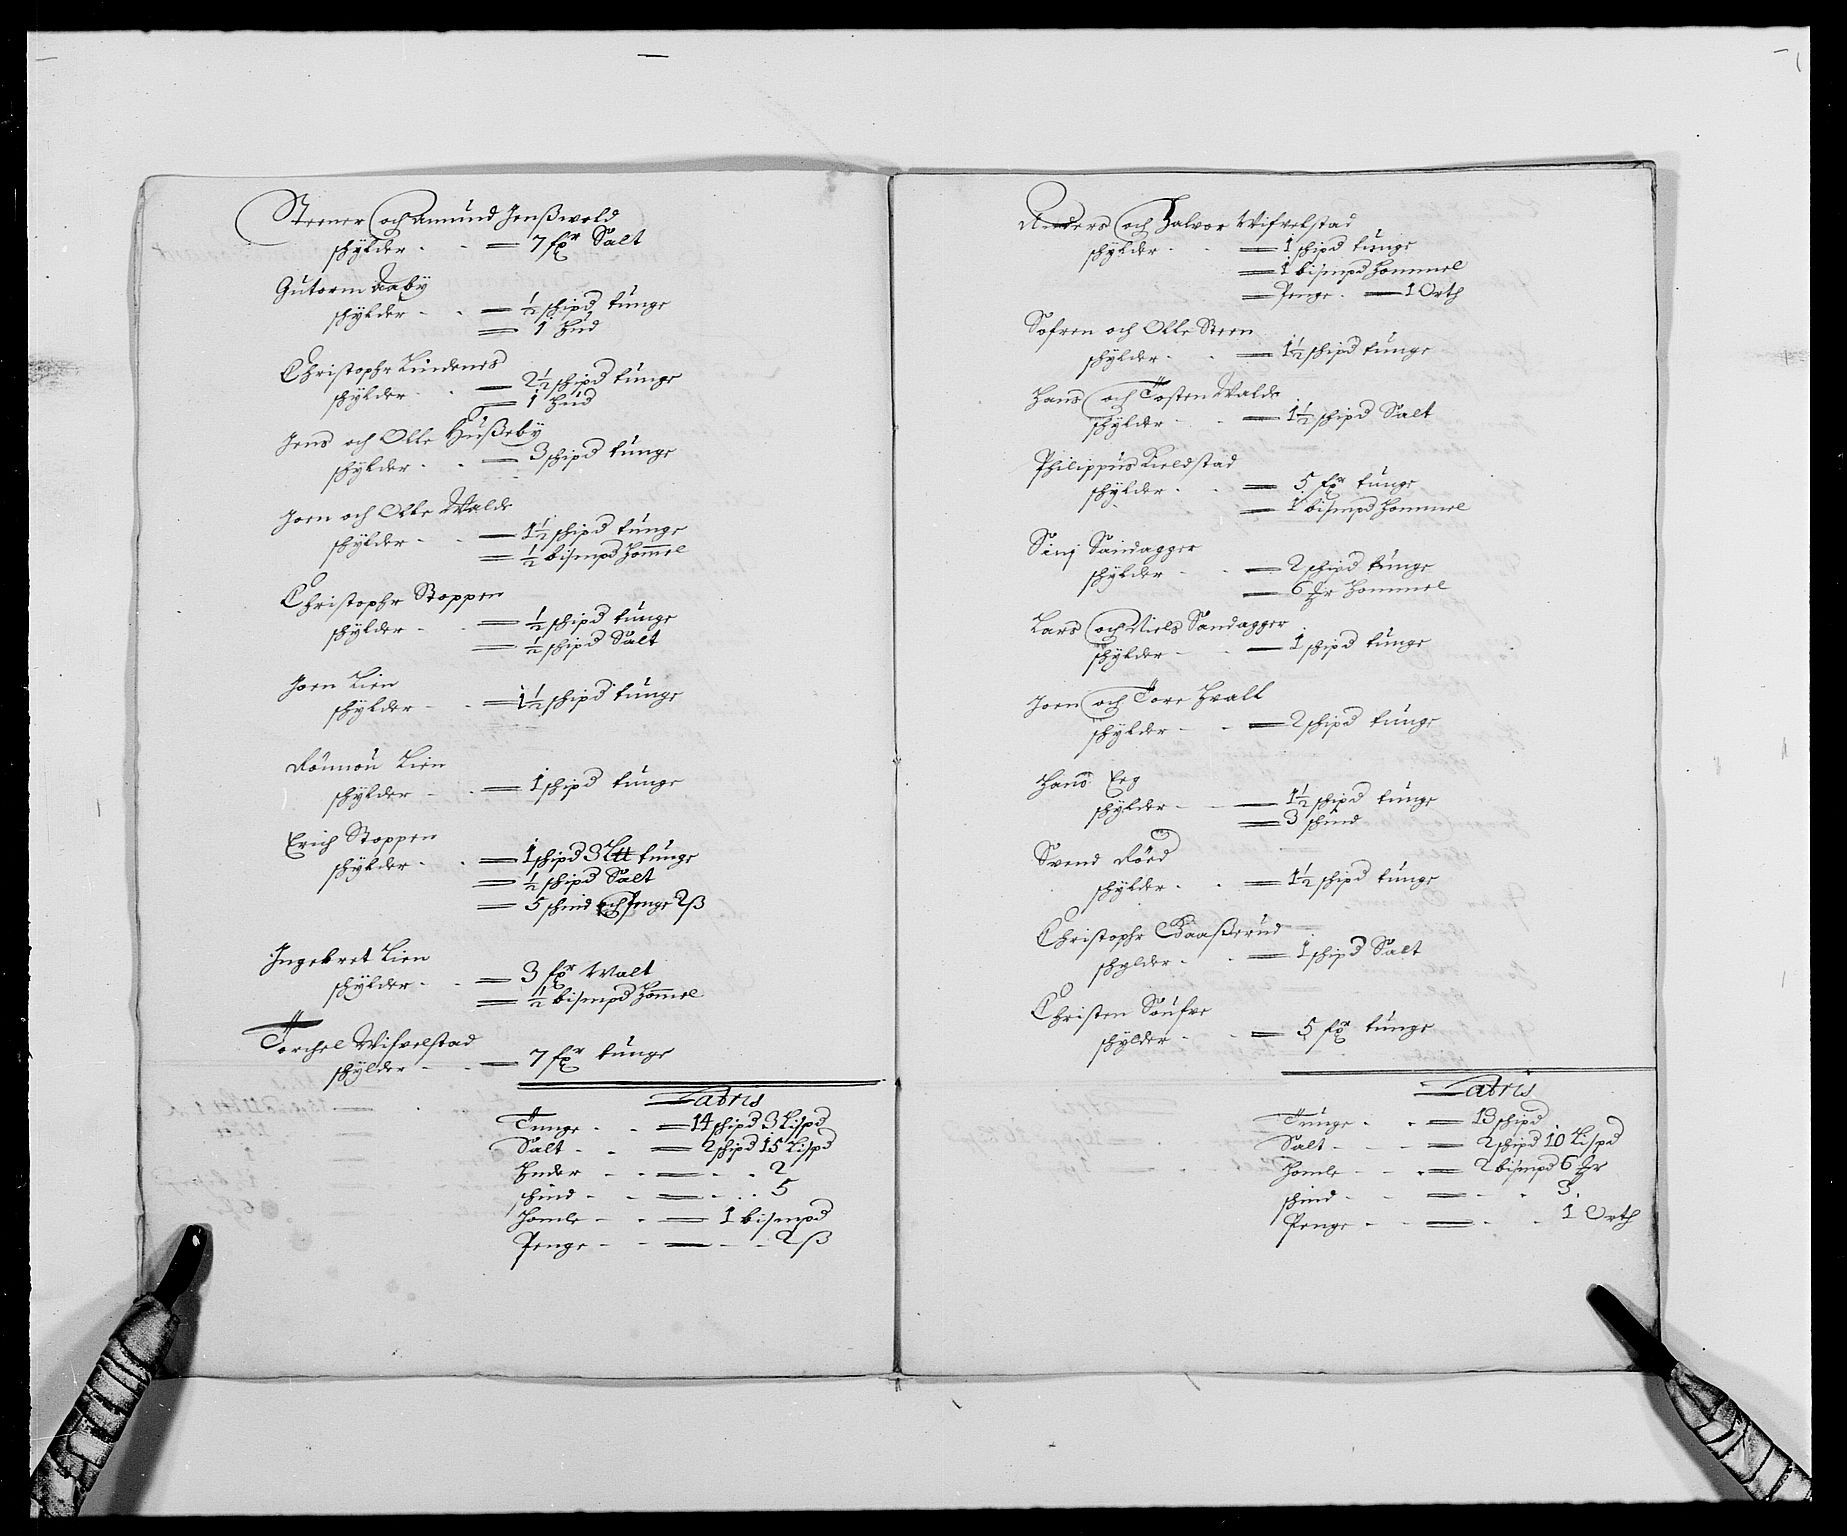 Steener och Amund Jenßwold
schÿlder - - 7 fxr Salt
Gutorm Raabÿ
schÿlder - - ½ schipd tunge
1 Hud
Christophr Lindenes
schÿlder - - 2½ schipd tunge
1 Hud
Jens och Olle Hußebÿ
schÿlder - - 3 schipd tunge
Joen och Olle Walde
schÿlder - - 1½ schipd tunge
½ bismpd Hom̄el
Christophr Stoppen
schÿlder - - ½ schipd tunge
½ schipd Salt
Joen Lien
schÿlder - - 1½ schipd tunge
Rönnou Lien
schÿlder - - 1 schipd tunge
Erich Stoppen
schÿlder - - 1 schipd 3 Ltt tunge
½ schipd Salt
5 schind och Penge 2 ß
Ingebret Lien
schÿlder - - 3 fxr Malt
½ bismpd Hom̄el
Torchel Wifvelstad
schÿlder - - 7 fxr tunge
Latris
Tunge - - 14 schipd 3 Lispd
Salt - - 2 schipd 15 Lispd
Huder - - 2
schind - - 5
Homle - - 1 bismpd
Penge - - 2 ß
Anders och Halvor Wifvelstad
schÿlder - - 1 schipd tunge
1 bismpd Hommel
Penge - 1 Orth
Sofren och Olle Steen
schÿlder - - 1½ schipd tunge
Hans och Tosten Walde
schÿlder - - 1½ schipd Salt
Philippus Kieldstad
schÿlder - - 5 fxr tunge
1 bismpd Hommel
Sinj Sandagger
schÿlder - - 2 schipd tunge
6 Hommel
Lars och Niels Sandagger
schÿlder - - 1 schipd tunge
Joen och Tore Hvall
schÿlder - - 2 schipd tunge
Hans Eeg
schÿlder - - 1½ schipd tunge
3 schind
Svend Röed
schÿlder - - 1½ schipd tunge
Christophr Baaßerud
schÿlder - - 1 schipd Salt
Christen Soufve
schÿlder - - 5 fxr tunge
Latris
Tunge - - 13 schipd
Salt - - 2 schipd 10 Lispd
Homle - - 2 bismpd 6
schind - - 3
Penge - - 1 Orth